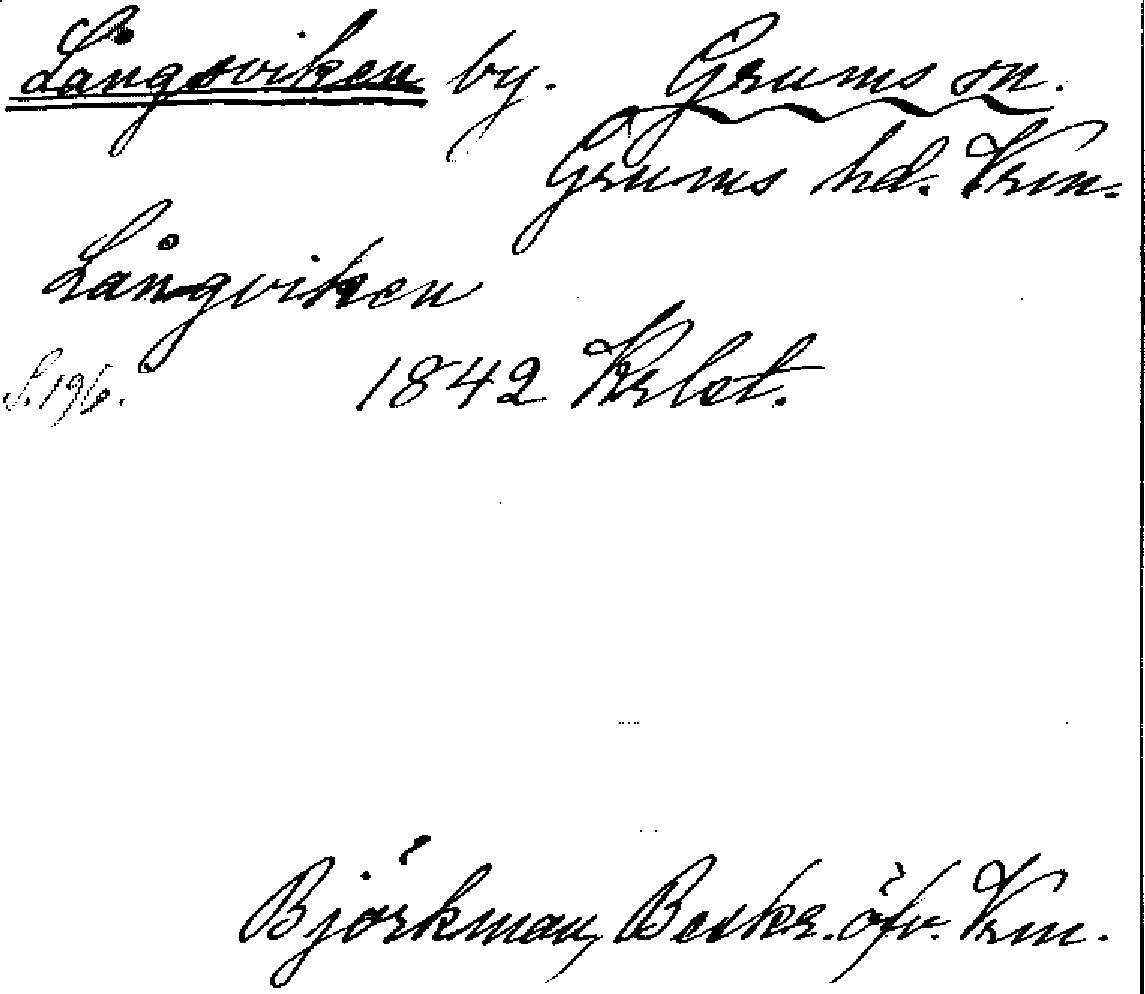 Långsviken by. Grums sn.
Grums hd. Vrm.
Långviken
S. 196. 1842 Krlst.
Björkman, Beskr. öfv. Vrm.